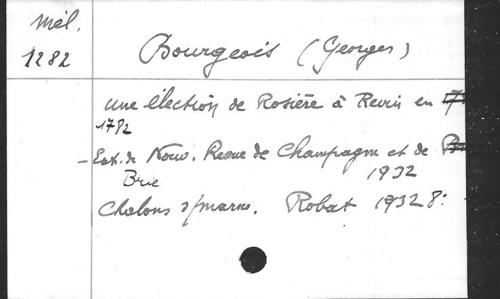 Mél.
1282
Bourgeois (Georges)
une élection de Rosière à Revin en
1782
- Ext. de Nouv. Revue de Champagne et de
Brie 1932
Chalons s/marne. Robat 1932 8: